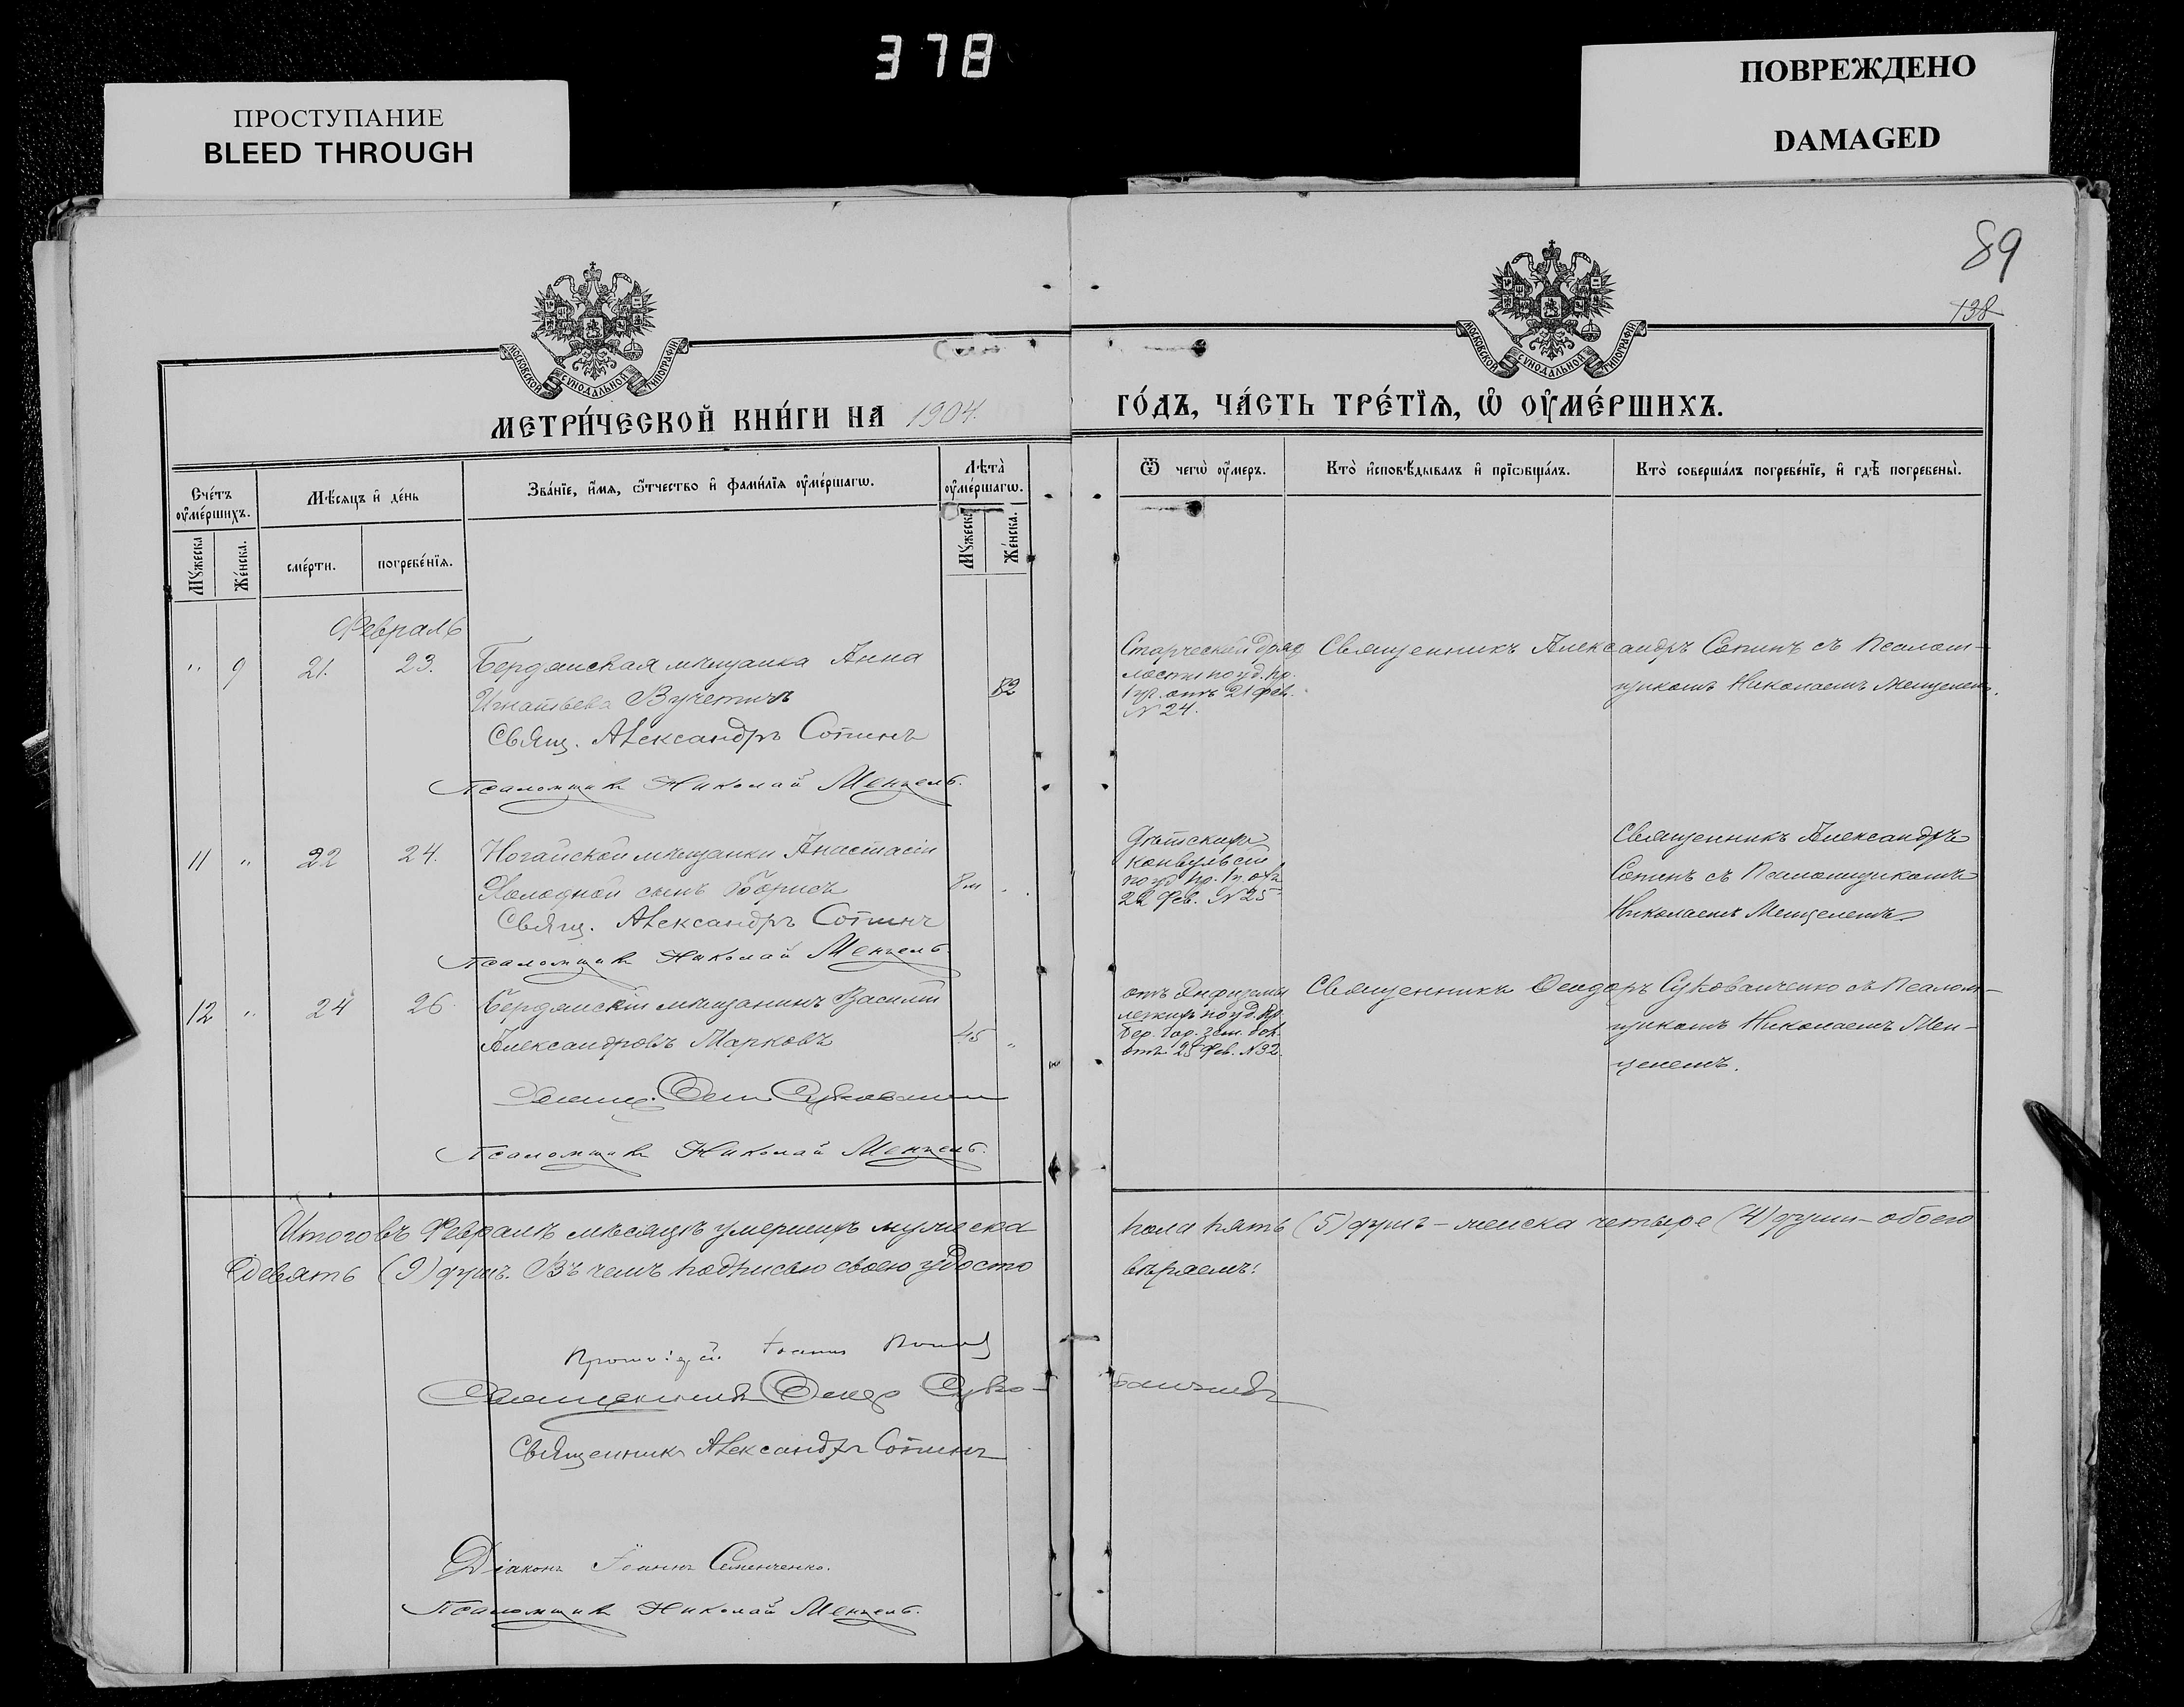 378
ПРОСТУПАНИЕ
BLEED THROUGH
ПОВРЕЖДЕНО
DAMAGED
89
138
МОСКОВСКОЙ СУНОДАЛЬНОЙ ТИПОГРАФІИ
МОСКОВСКОЙ СУНОДАЛЬНОЙ ТИПОГРАФІИ
МЕТРИ́ЧЕСКОЙ КНИ́ГИ НА 1904.
ГО́ДЪ, ЧА́СТЬ ТРЕ́ТІѦ, Ѡ ОУ҆МЕ́РШИХЪ.
Сче́тъ оу҆ме́ршихъ.
Мѣ́сяцъ и҆ де́нь
Зва́нїе, и҆́мѧ, ѻ҆́тчество и҆ фами́лїѧ оу҆ме́ршагѡ.
Лѣта̀ оу҆ме́ршагѡ.
Ѿ чегѡ̀ оу҆́меръ.
Кто̀ и҆сповѣ́дывалъ и҆ прїѡбща́лъ.
Кто̀ соверша́лъ погребе́нїе, и҆ гдѣ̀ погребены̀.
Мꙋжеска
Же́нска.
сме́рти.
погребе́нїѧ.
Мꙋжеска
Же́нска.
Февраль
" 9 21. 23. Бердянская мѣщанка Анна
Игнатьева Вучетичъ
82
Свящ. Александръ Сотинъ
Псаломщикъ Николай Менцель.
Старческой дрях
лости по уд. пр.
1 уч. отъ 21 фев.
№ 24.
Священникъ Александръ Сотинъ съ Псалом-
щикомъ Николаемъ Менцелемъ.
11 " 22 24. Ногайской мѣщанки Анастасіи
Холодной сынъ Борисъ
8 м
Свящ. Александръ Сотинъ
Псаломщикъ Николай Менцель
Дѣтскихъ
конвульсій
по уд. пр. 1 п. отъ
22 фев. № 25
Священникъ Александръ
Сотинъ съ Псаломщикомъ
Николаемъ Менцелемъ
12 " 24 26. Бердянскій мѣщанинъ Василій
Александровъ Марковъ
45 "
Псаломщикъ Николай Менцель.
отъ Энфиземы
легкихъ по уд. вр.
Бер. Гор. зем. бол.
отъ 25 фев. № 32.
Священникъ Феодоръ Сукованченко съ Псалом-
щикомъ Николаемъ Мен-
целемъ.
Итого въ Февралѣ мѣсяцѣ умершихъ мужеска пола пять (5) душъ – женска четыре (4) души – обоего
девять (9) душъ. Въ чемъ подписью своею удосто
вѣряемъ:
Протоіерей Іоаннъ
Священникъ Феодо Суко-
Священникъ Александръ Сотинъ
Діаконъ Іоаннъ Семенченко.
Псаломщикъ Николай Менцель.